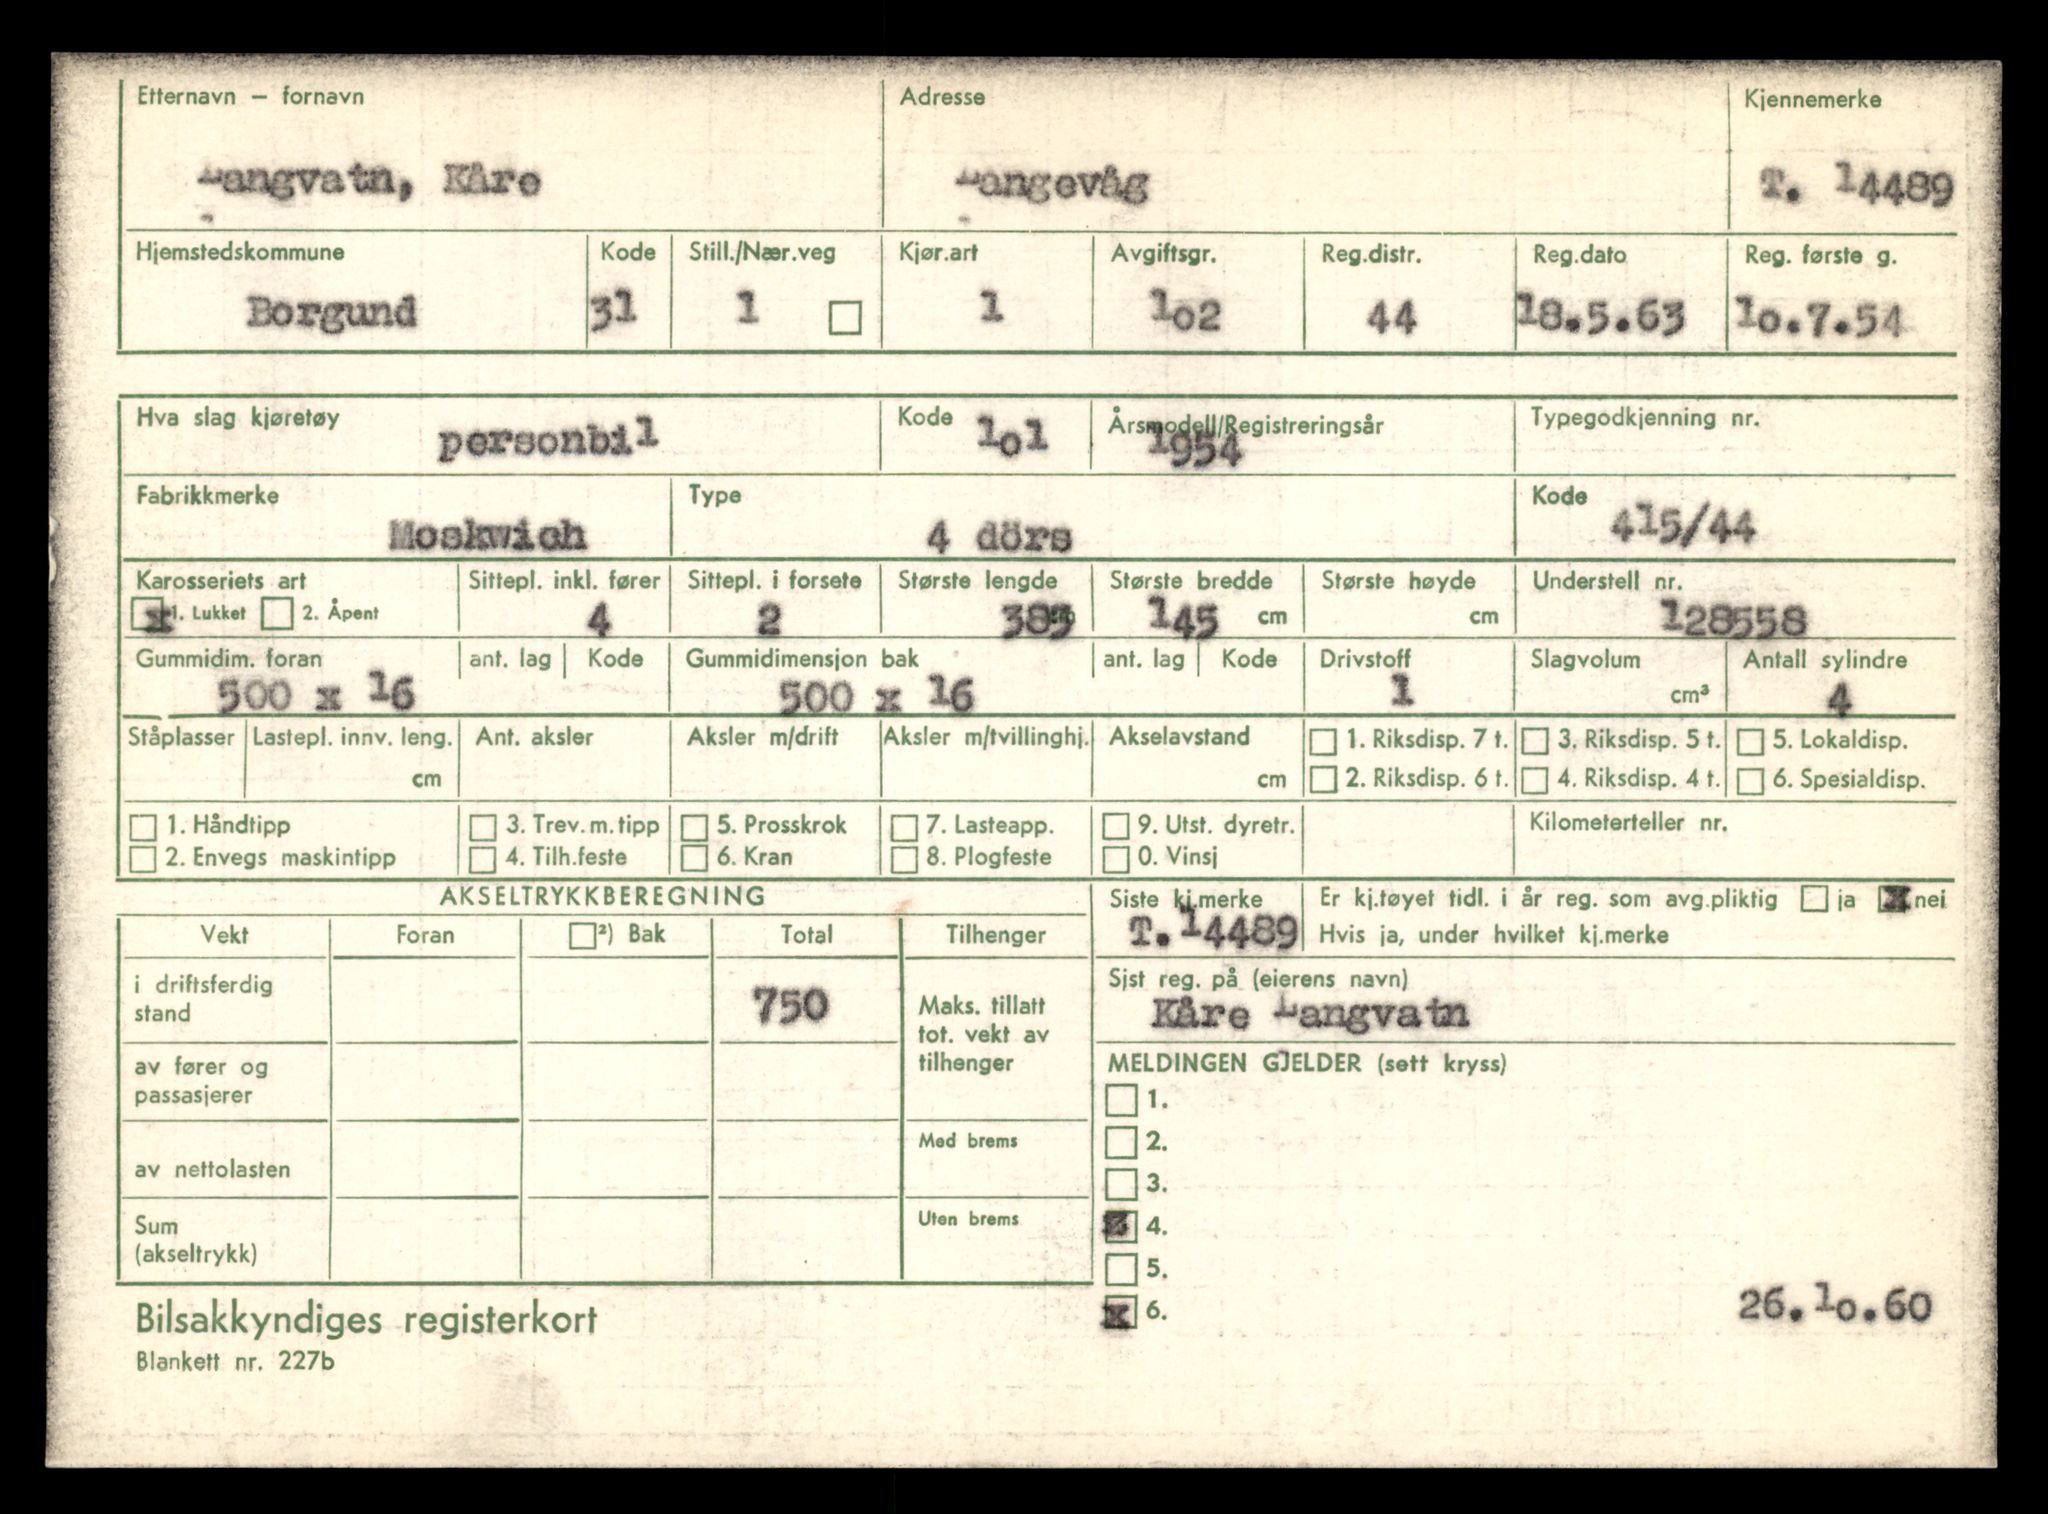 Etternavn – fornavn Adresse Kjennemerke
Langvatn, Kåre Langevåg T. 14489
Hjemstedskommune Kode Still./Nær.veg Kjør.art Avgiftsgr. Reg.distr. Reg.dato Reg. første g.
Borgund 31 1 1 102 44 18.5.63 10.7.54
Hva slag kjøretøy Kode Årsmodell/Registreringsår Typegodkjenning nr.
personbil 101 1954
Fabrikkmerke Type Kode
Moskwich 4 dörs 415/44
Karosseriets art Sittepl. inkl. fører Sittepl. i forsete Største lengde Største bredde Største høyde Understell nr.
x 1. Lukket 2. Åpent 4 2 383 cm 145 cm cm 128558
Gummidim. foran ant. lag Kode Gummidimensjon bak ant. lag Kode Drivstoff Slagvolum Antall sylindre
500 x 16 500 x 16 1 cm³ 4
Ståplasser Lastepl. innv. leng. Ant. aksler Aksler m/drift Aksler m/tvillinghj. Akselavstand 1. Riksdisp. 7 t. 3. Riksdisp. 5 t. 5. Lokaldisp.
cm cm 2. Riksdisp. 6 t. 4. Riksdisp. 4 t. 6. Spesialdisp.
1. Håndtipp 3. Trev. m. tipp 5. Prosskrok 7. Lasteapp. 9. Utst. dyretr. Kilometerteller nr.
2. Envegs maskintipp 4. Tilh.feste 6. Kran 8. Plogfeste 0. Vinsj
AKSELTRYKKBEREGNING Siste kj.merke Er kj.tøyet tidl. i år reg. som avg.pliktig ja x nei
Vekt Foran ²) Bak Total Tilhenger T. 14489 Hvis ja, under hvilket kj.merke
i driftsferdig
stand 750 Maks. tillatt
tot. vekt av
tilhenger Sist reg. på (eierens navn)
Kåre Langvatn
av fører og
passasjerer MELDINGEN GJELDER (sett kryss)
1.
Med brems 2.
av nettolasten 3.
Sum
(akseltrykk) Uten brems x 4.
5.
x 6. 26.10.60
Bilsakkyndiges registerkort
Blankett nr. 227b